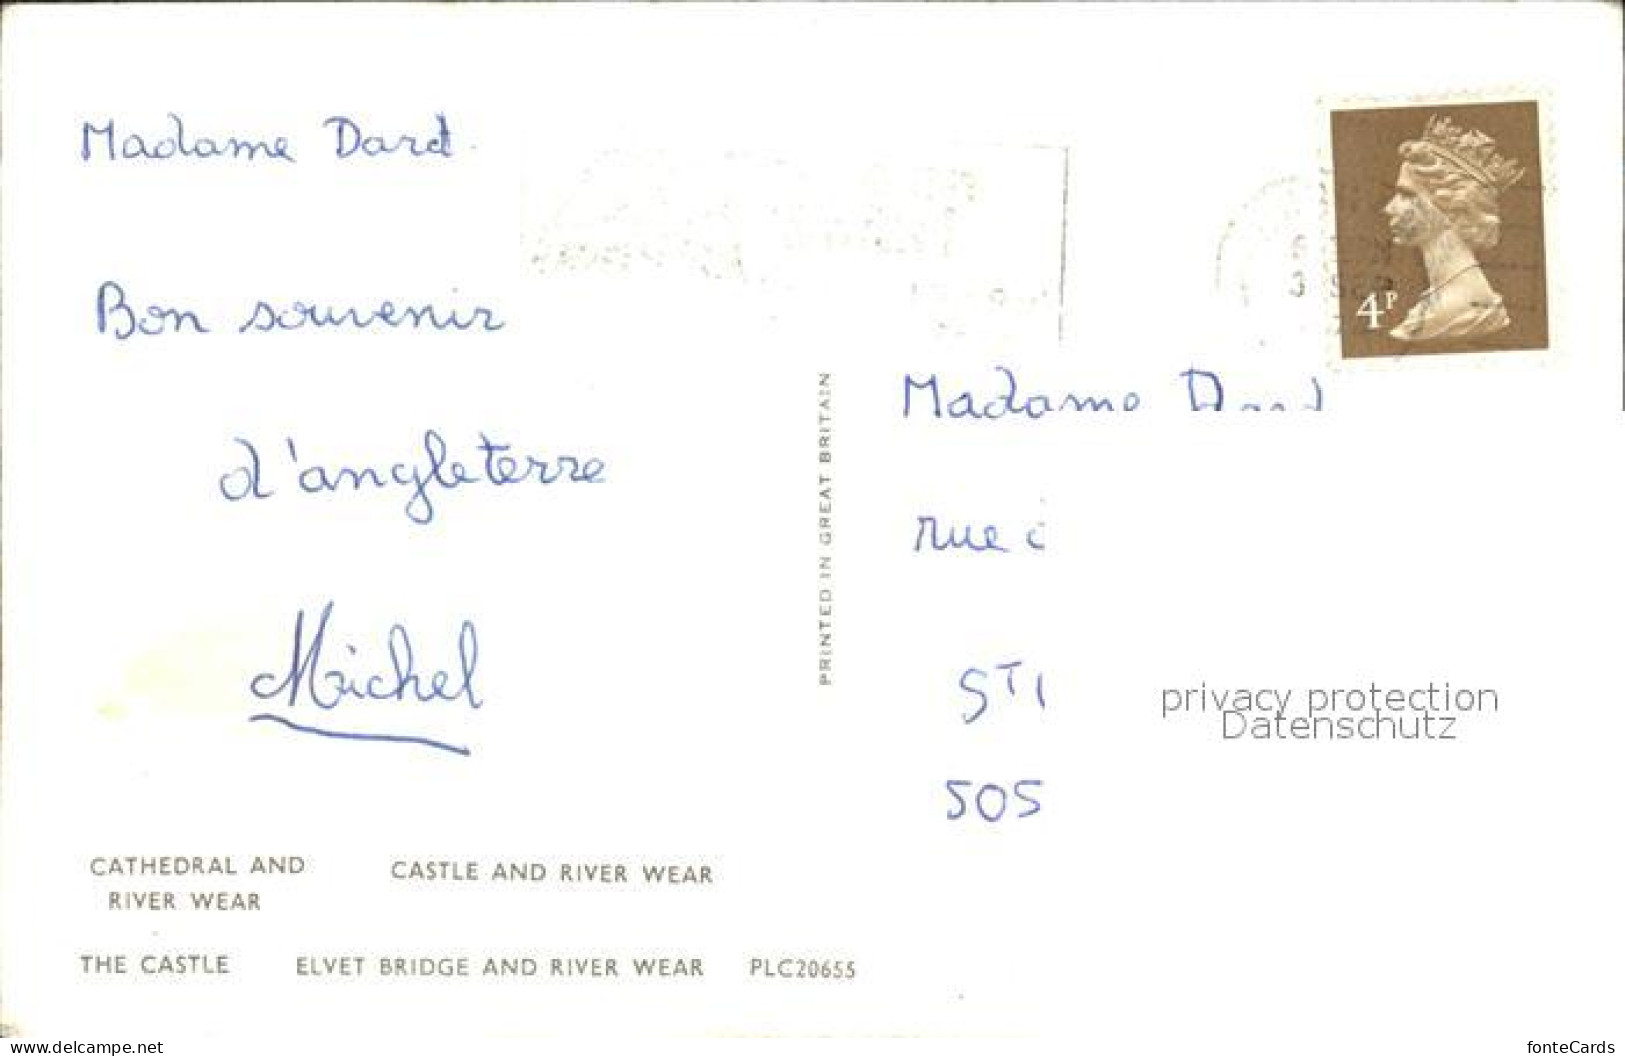 Madame Dard.
Bon souvenir
d'angleterre
Michel
4P
PRINTED IN GREAT BRITAIN
Madame Dard
rue
ST
505
privacy protection
Datenschutz
CATHEDRAL AND
RIVER WEAR
CASTLE AND RIVER WEAR
THE CASTLE
ELVET BRIDGE AND RIVER WEAR
PLC20655
www.delcampe.net
fonteCards